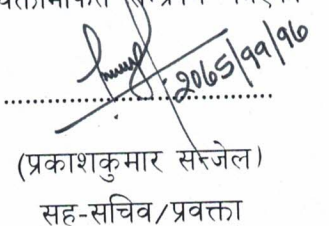 २०६५/११/१६
(प्रकाशकुमार सन्जेल)
सह-सचिव/प्रवक्ता